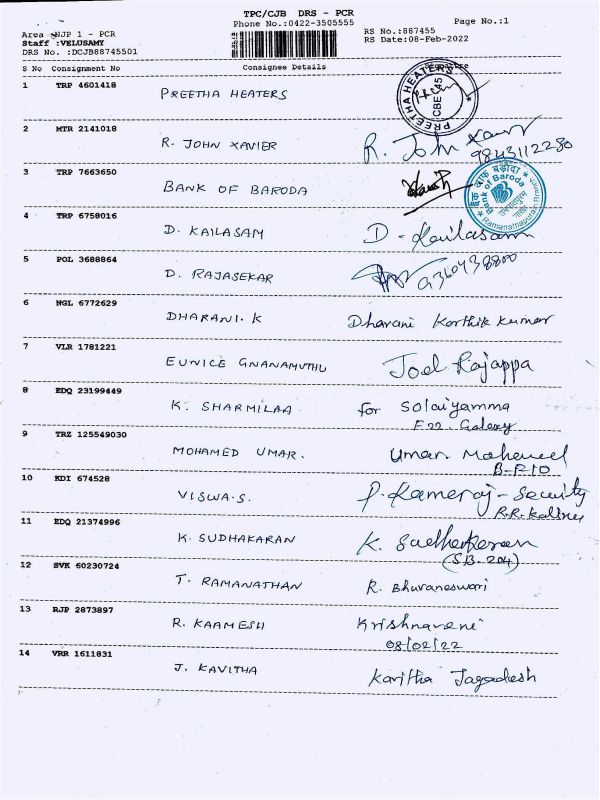 TPC/CJB DRS - PCR
Phone No.:0422-3505555
Page No.:1
Area :NJP 1 - PCR
RS No.:887455
Staff :VELUSAMY
RS Date:08-Feb-2022
DRS No. :DCJB88745501
S No Consignment No Consignee Details
1 TRP 4601418 PREETHA HEATERS
PREETHA HEATERS
CBE 45
2 MTR 2141018 R. JOHN XAVIER R. John Xavier
9843112280
3 TRP 7663650 BANK OF BARODA
बैंक ऑफ़ बड़ौदा
Bank of Baroda
Ramanathapuram Branch
4 TRP 6758016 D. KAILASAM D. Kailasam
5 POL 3688864 D. RAJASEKAR 9360438800
6 NGL 6772629 DHARANI. K Dharani Karthik kumar
7 VLR 1781221 EUNICE GNANAMUTHU Joel Rajappa
8 EDQ 23199449 K. SHARMILAA for Solaiyamma
F22. Galaxy
9 TRZ 125549030 MOHAMED UMAR. Umar Mohamed
B-F10
10 KDI 674528 VISWA.S. P. Kameraj - Security
R.R.
11 EDQ 21374996 K. SUDHAKARAN K. Sudhakaran
(SB-204)
12 SVK 60230724 T. RAMANATHAN R. Bhuvaneswari
13 RJP 2873897 R. KAAMESH Krishnaveni
08/02/22
14 VRR 1611831 J. KAVITHA Kavitha Jagadesh